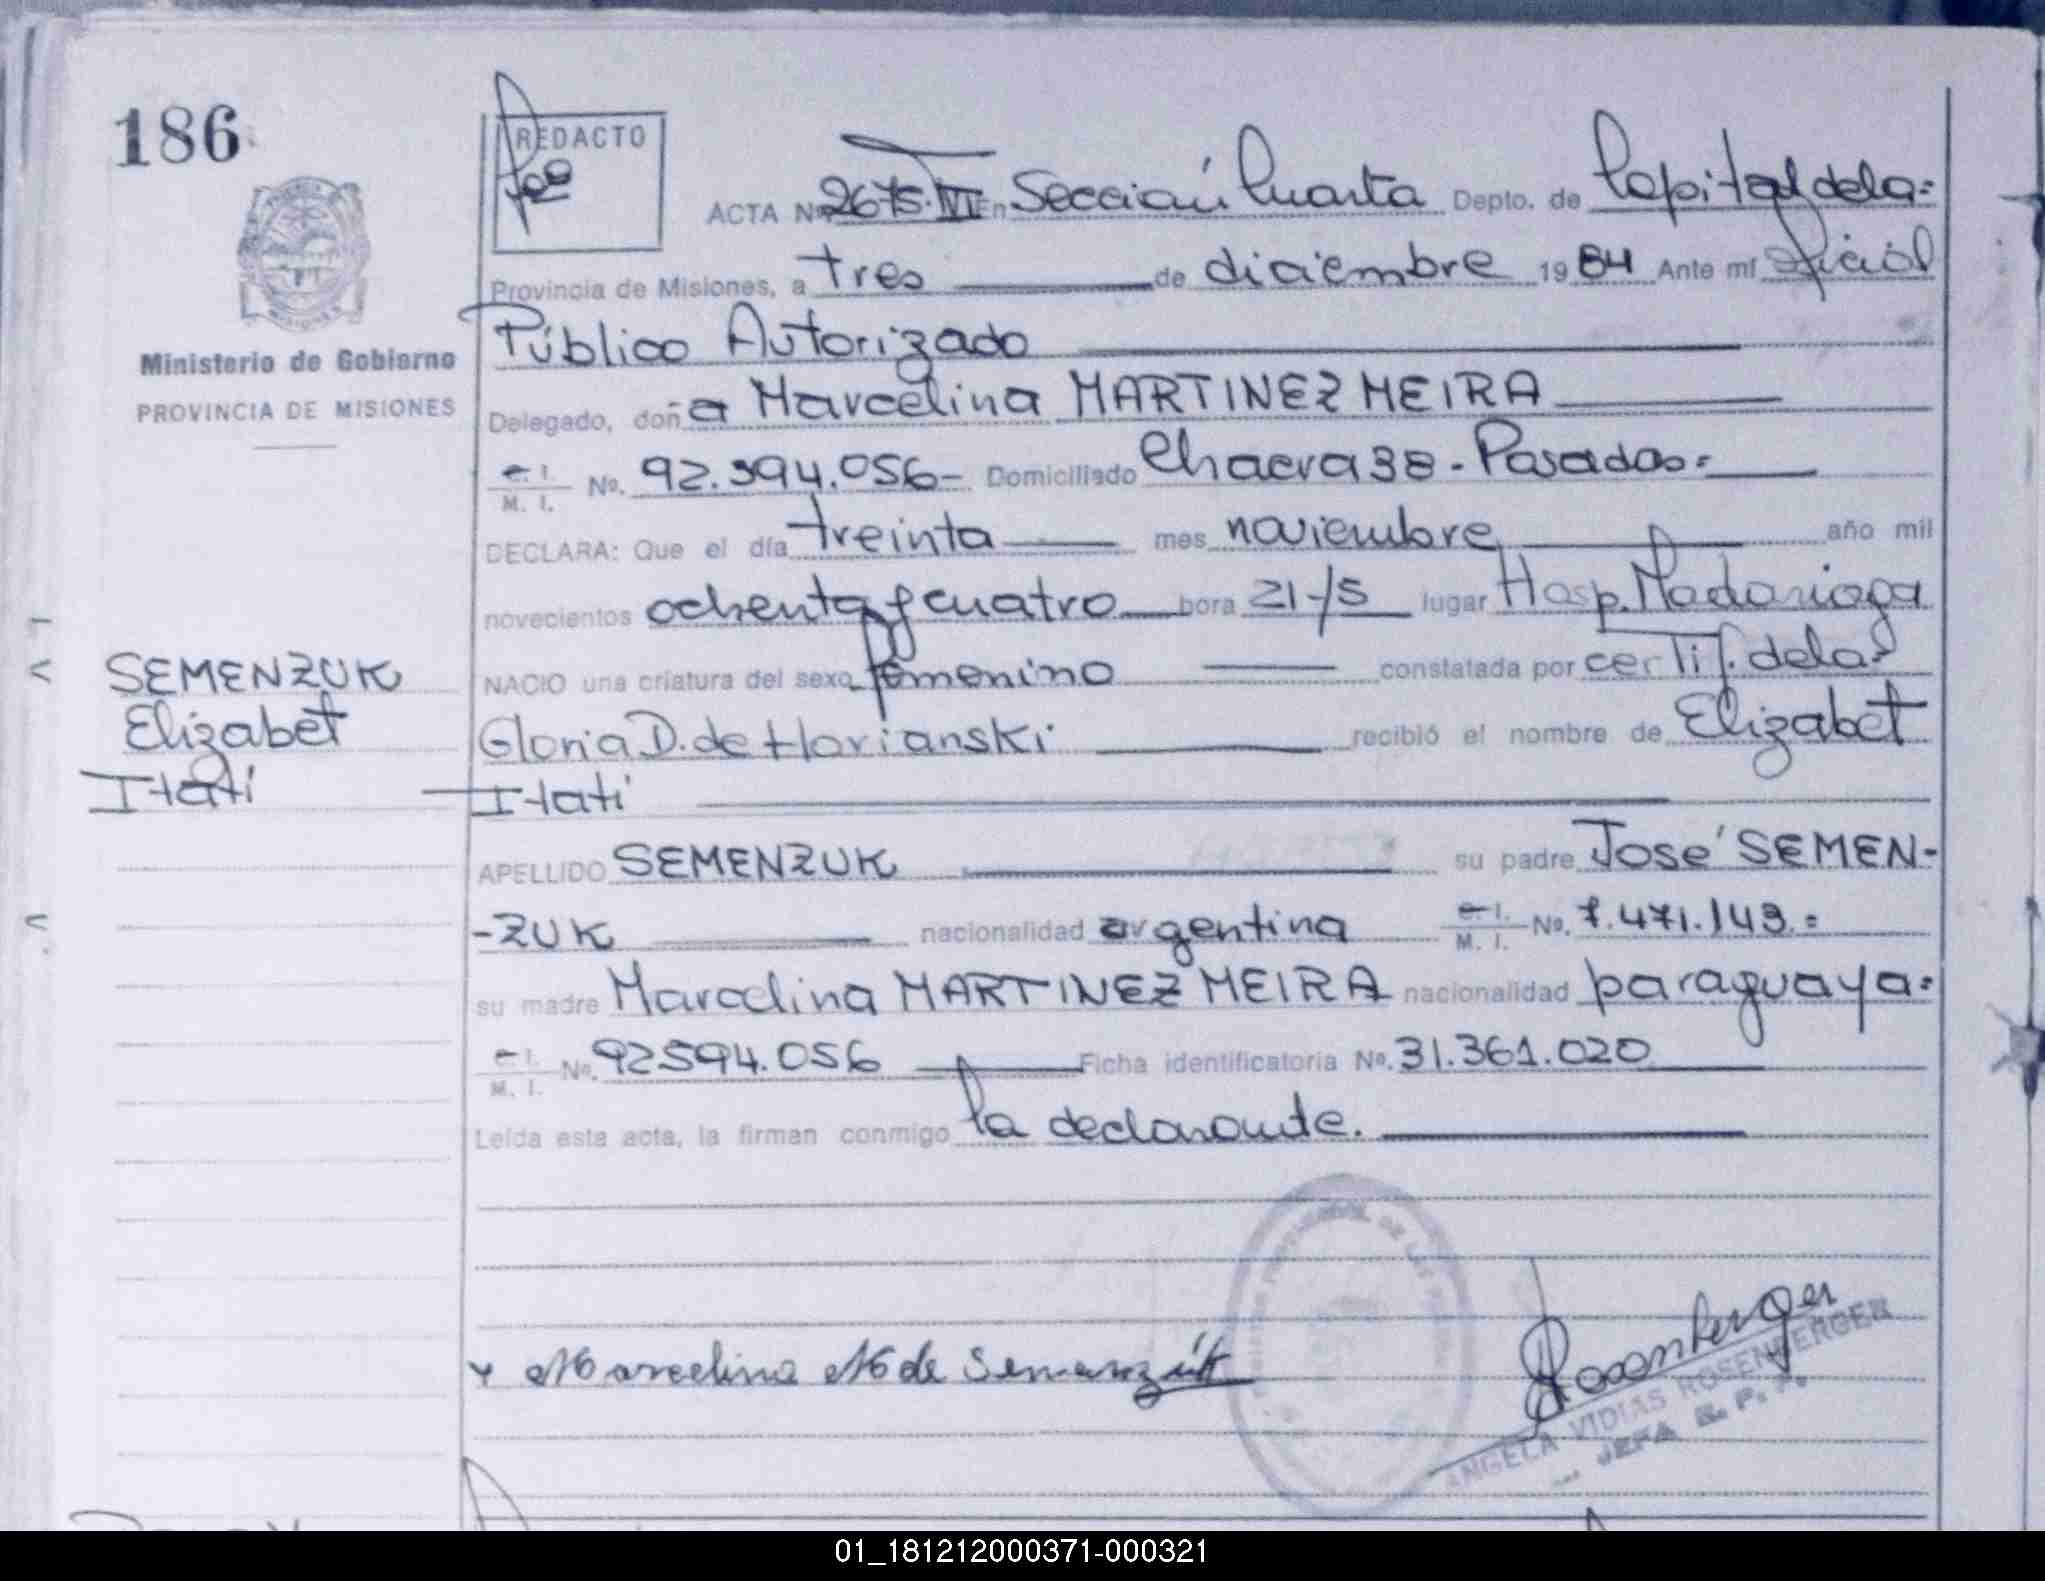 186
REDACTO
ACTA Nº 2675-VII En Sección Cuarta Depto. de Capital de la=
Provincia de Misiones, a tres de diciembre 1984 Ante mí Oficial
Ministerio de Gobierno
PROVINCIA DE MISIONES
Público Autorizado
Delegado, doña Marcelina MARTINEZ MEIRA
C. I. M. I. No. 92.594.056- Domiciliado Chacra 38 - Posadas=
DECLARA: Que el día treinta mes noviembre año mil
novecientos ochenta y cuatro hora 21-15 lugar Hosp. Madariaga
NACIO una criatura del sexo femenino constatada por certif. de la=
Gloria D. de Horianski recibió el nombre de Elizabet
Itatí
SEMENZUK
Elizabet
Itatí
APELLIDO SEMENZUK su padre José SEMEN-
-ZUK nacionalidad argentina C. I. M. I. No. 7.471.143.=
su madre Marcelina MARTINEZ MEIRA nacionalidad paraguaya=
C. I. M. I. No. 92594.056 Ficha identificatoria No. 31.361.020
Leída esta acta, la firman conmigo la declarante.
Marcelina M de Semenzuk
Rosenberger
ANGELA VIDIAS ROSENBERGER
JEFA R. P. P.
01_181212000371-000321